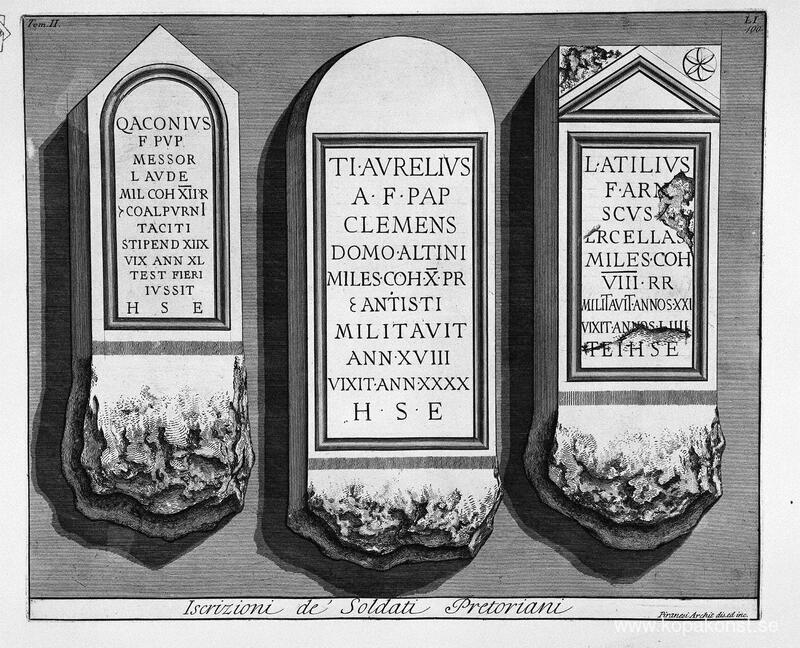 Tom. II.
LI
100.
QACONIVS
F PVP.
MESSOR
L AVDE
MIL COH X̅I̅I̅ PR
COALPVRNI
TACITI
STIPEND XIIX
VIX ANN XL
TEST FIERI
IVSSIT
H S E
TI·AVRELIVS
A·F·PAP
CLEMENS
DOMO·ALTINI
MILES·COH·X̅·PR
ANTISTI
MILITAVIT
ANN·XVIII
VIXIT·ANN·XXXX
H·S·E
L·ATILIVS
F·ARN
SCVS
ERCELLAS
MILES·COH
V̅I̅I̅I̅·RR
MILITAVIT·ANNOS·XXI
VIXIT·ANNOS·LIIII
TEIHSE
Iscrizioni de' Soldati Pretoriani
Piranesi Archit. dis. ed inc.
www.kopakonst.se